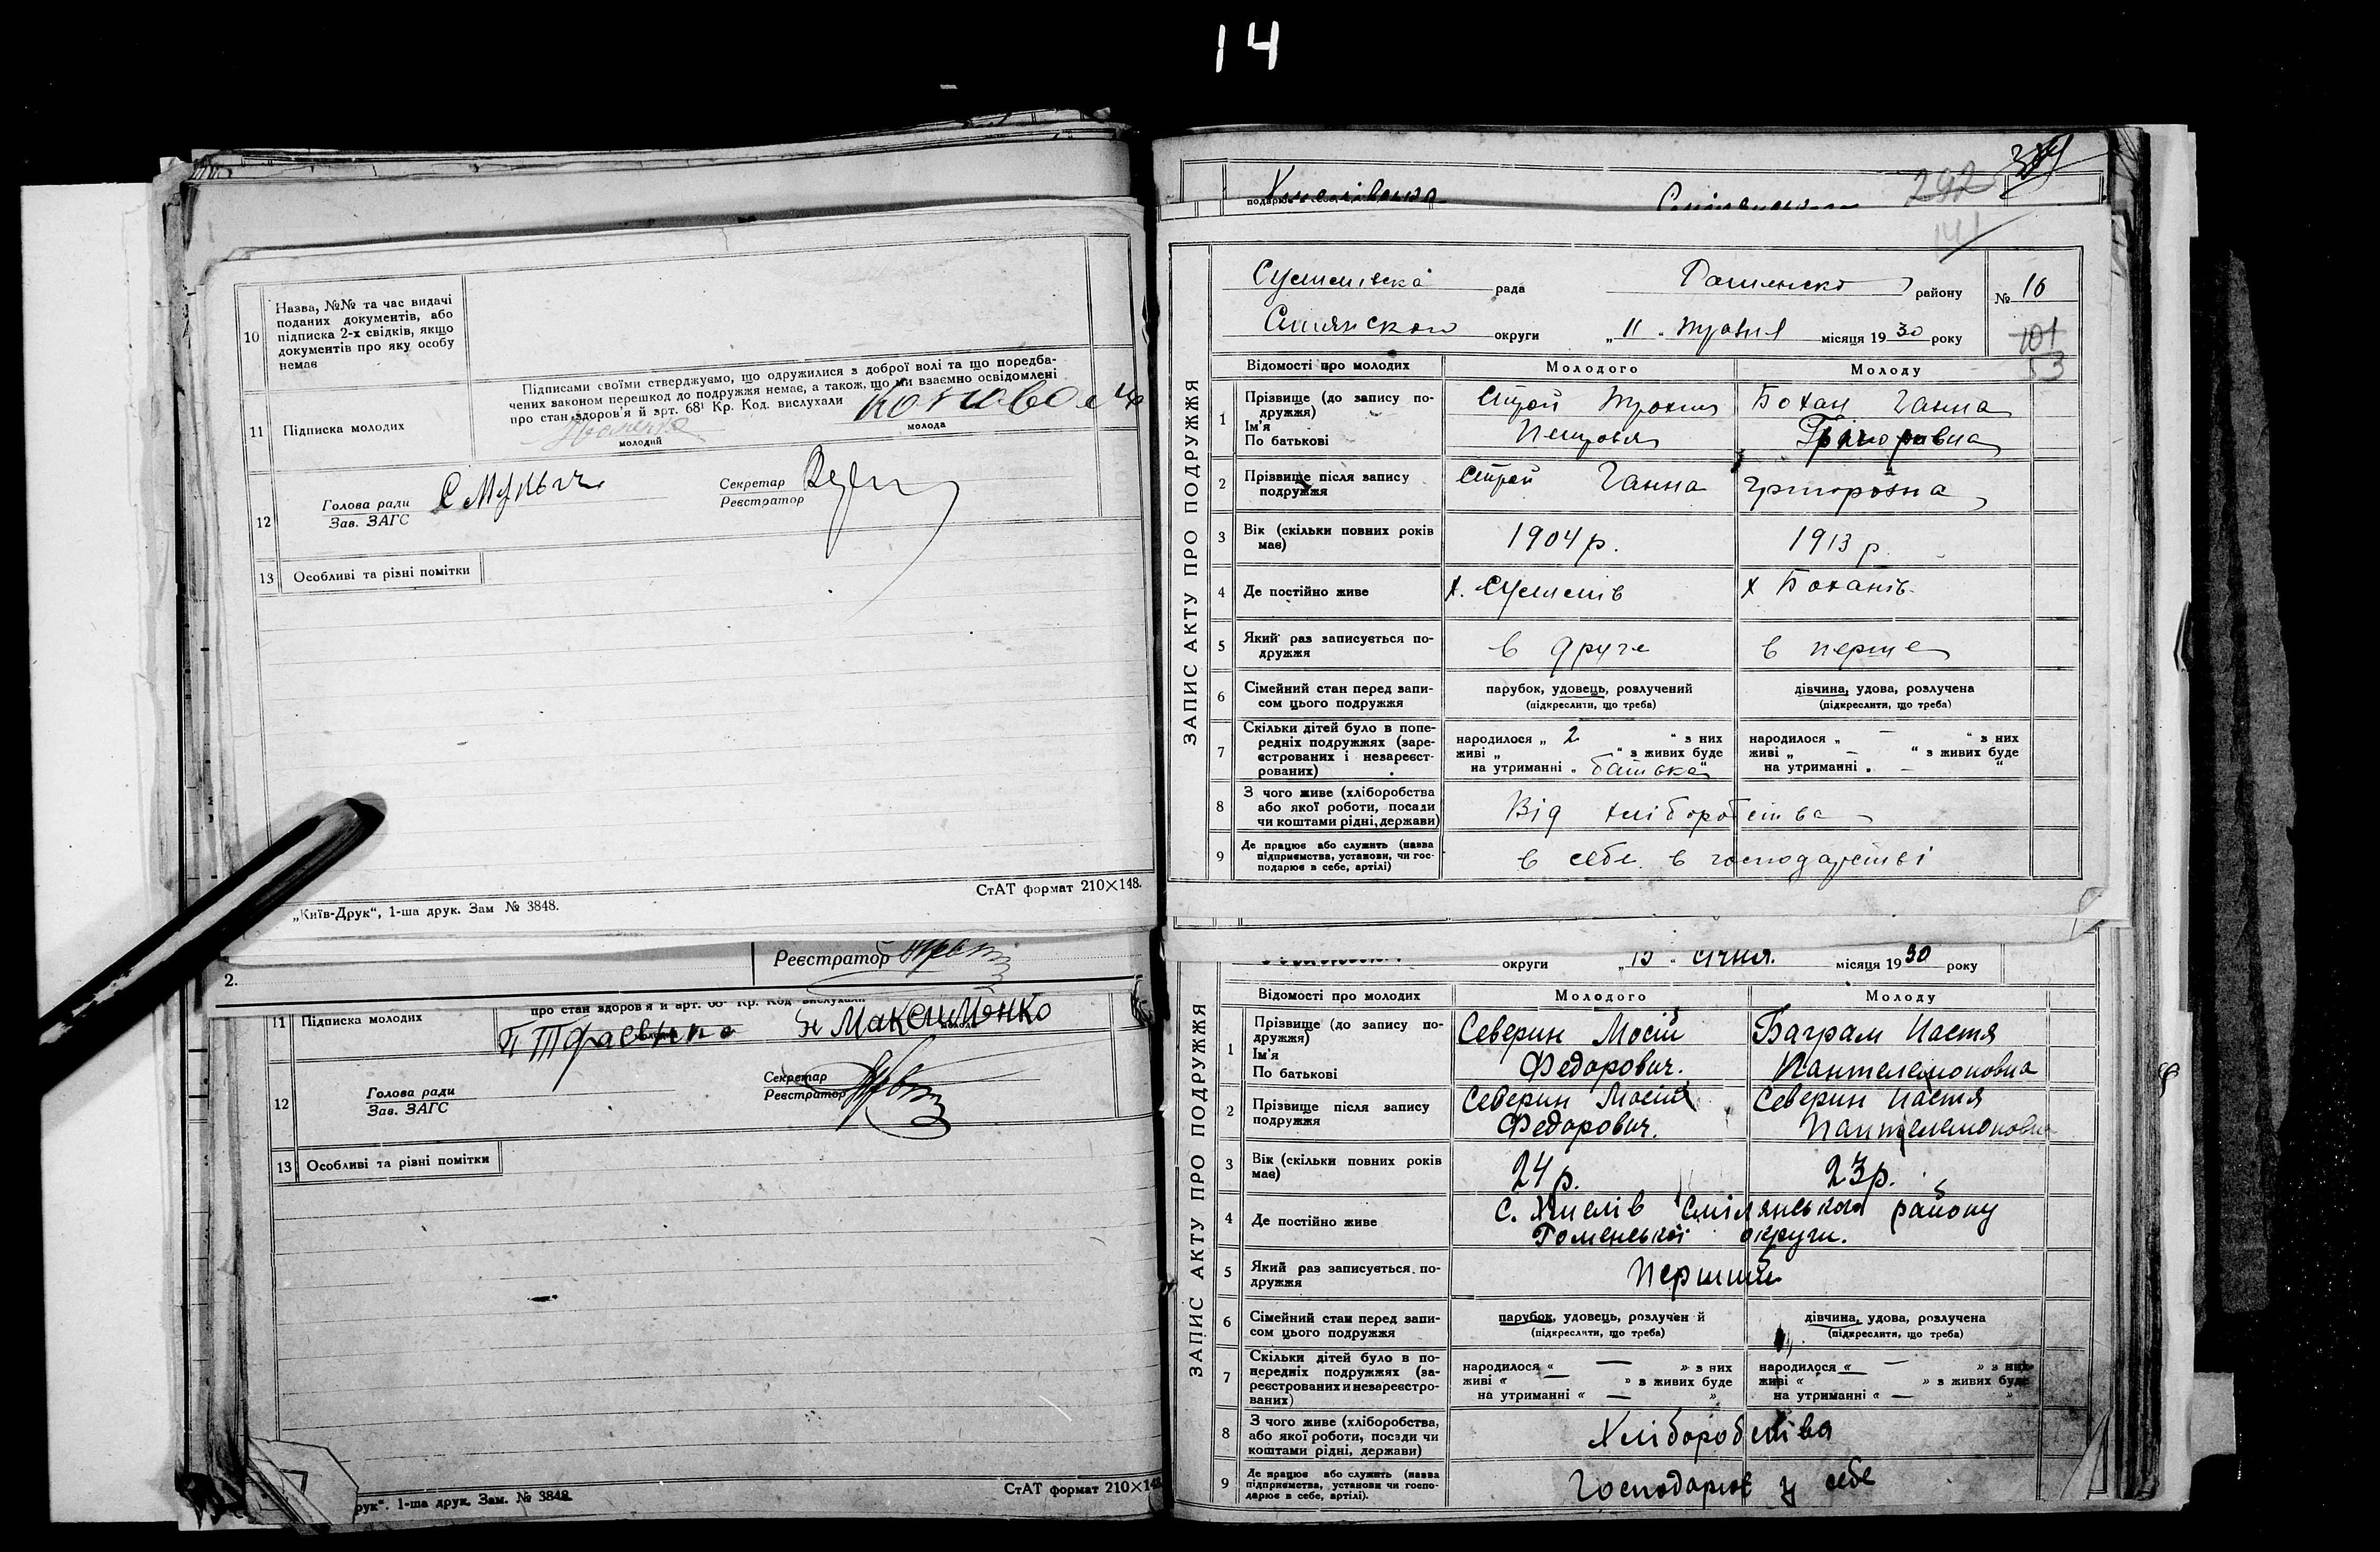 14
10 Назва, №№ та час видачі
поданих документів, або
підписка 2-х свідків, якщо
документів про яку особу
немає
Підписами своїми стверджуємо, що одружилися з доброї волі та що передба-
чених законом перешкод до подружжя немає, а також, що ми взаємно освідомлені
про стан здоров'я й арт. 68¹ Кр. Код. вислухали
11 Підписка молодих
молодий молода
12 Голова ради
Зав. ЗАГС
Секретар
Реєстратор
13 Особливі та різні помітки
СтАТ формат 210×148.
„Київ-Друк“, 1-ша друк. Зам № 3848.
Реєстратор
2.
про стан здоров'я й арт. 68¹ Кр. Код вислухали
11 Підписка молодих
Максименко
12 Голова ради
Зав. ЗАГС
Секретар
Реєстратор
13 Особливі та різні помітки
СтАТ формат 210×148
рук“. 1-ша друк. Зам. № 3848
292
141
ЗАПИС АКТУ ПРО ПОДРУЖЖЯ
рада району № 16
округи „11“ травня місяця 1930 року
101
53
Відомості про молодих Молодого Молоду
1 Прізвище (до запису по-
дружжя)
Ім'я
По батькові
Строй Трохим
Петрович
Бохан Ганна
Григоровна
2 Прізвище після запису
подружжя
Строй Ганна Григоровна
3 Вік (скільки повних років
має)
1904 р. 1913 р.
4 Де постійно живе х. х Боханів
5 Який раз записується по-
дружжя
в друге в перше
6 Сімейний стан перед запи-
сом цього подружжя
парубок, удовець, розлучений
(підкреслити, що треба)
дівчина, удова, розлучена
(підкреслити, що треба)
7 Скільки дітей було в попе-
редніх подружжях (заре-
єстрованих і незареєст-
рованих)
народилося „ 2 “ з них
живі „ “ з живих буде
на утриманні „ батька “
народилося „ — “ з них
живі „ — “ з живих буде
на утриманні „ — “
8 З чого живе (хліборобства
або якої роботи, посади
чи коштами рідні, держави)
Від хліборобства
9 Де працює або служить (назва
підприємства, установи, чи гос-
подарює в себе, артілі)
в себе в господарстві
ЗАПИС АКТУ ПРО ПОДРУЖЖЯ
округи „15“ січня. місяця 1930 року
Відомості про молодих Молодого Молоду
1 Прізвище (до запису по-
дружжя)
Ім'я
По батькові
Северин Мосій
Федорович.
Баграм Настя
Пантелемоновна
2 Прізвище після запису
подружжя
Северин Мосій
Федорович.
Северин Настя
Пантелемоновна
3 Вік (скільки повних років
має)
24 р. 23 р.
4 Де постійно живе
с. Хмелів Смілянського району
Роменської округи.
5 Який раз записується по-
дружжя
Перший
6 Сімейний стан перед запи-
сом цього подружжя
парубок, удовець, розлучен й
(підкреслити, що треба)
дівчина, удова, розлучена
(підкреслити, що треба)
7 Скільки дітей було в по-
передніх подружжях (за-
реєстрованих и незареєстро-
ваних)
народилося « — » з них
живі « — » з живих буде
на утриманні « — »
народилося « — » з них
живі « » з живих буде
на утриманні « — »
8 З чого живе (хліборобства,
або якої роботи, посади чи
коштами рідні, держави)
Хліборобства
9 Де працює або служить (назва
підприємства, установи чи госпо-
дарює в себе, артілі).
Господарює у себе